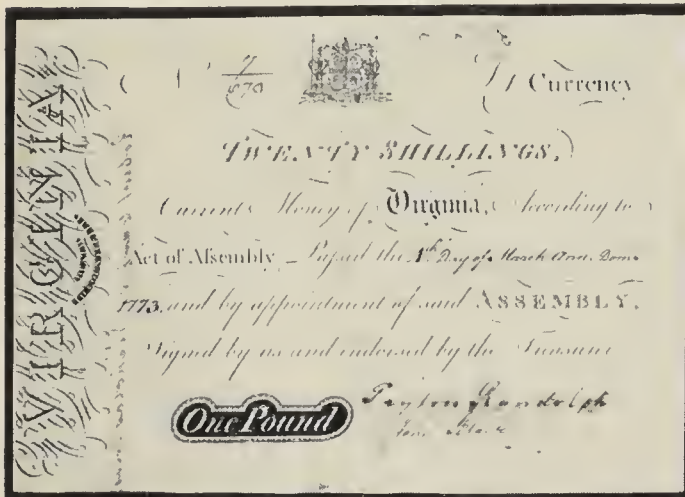 VIRGINIA
7
Currency
TWENTY SHILLINGS,
Current Money of Virginia, According to
Act of Assembly Passed the Day of March Ann. Dom.
1773, and by appointment of said ASSEMBLY.
Signed by us and endorsed by the Treasurer
One Pound
Peyton Randolph